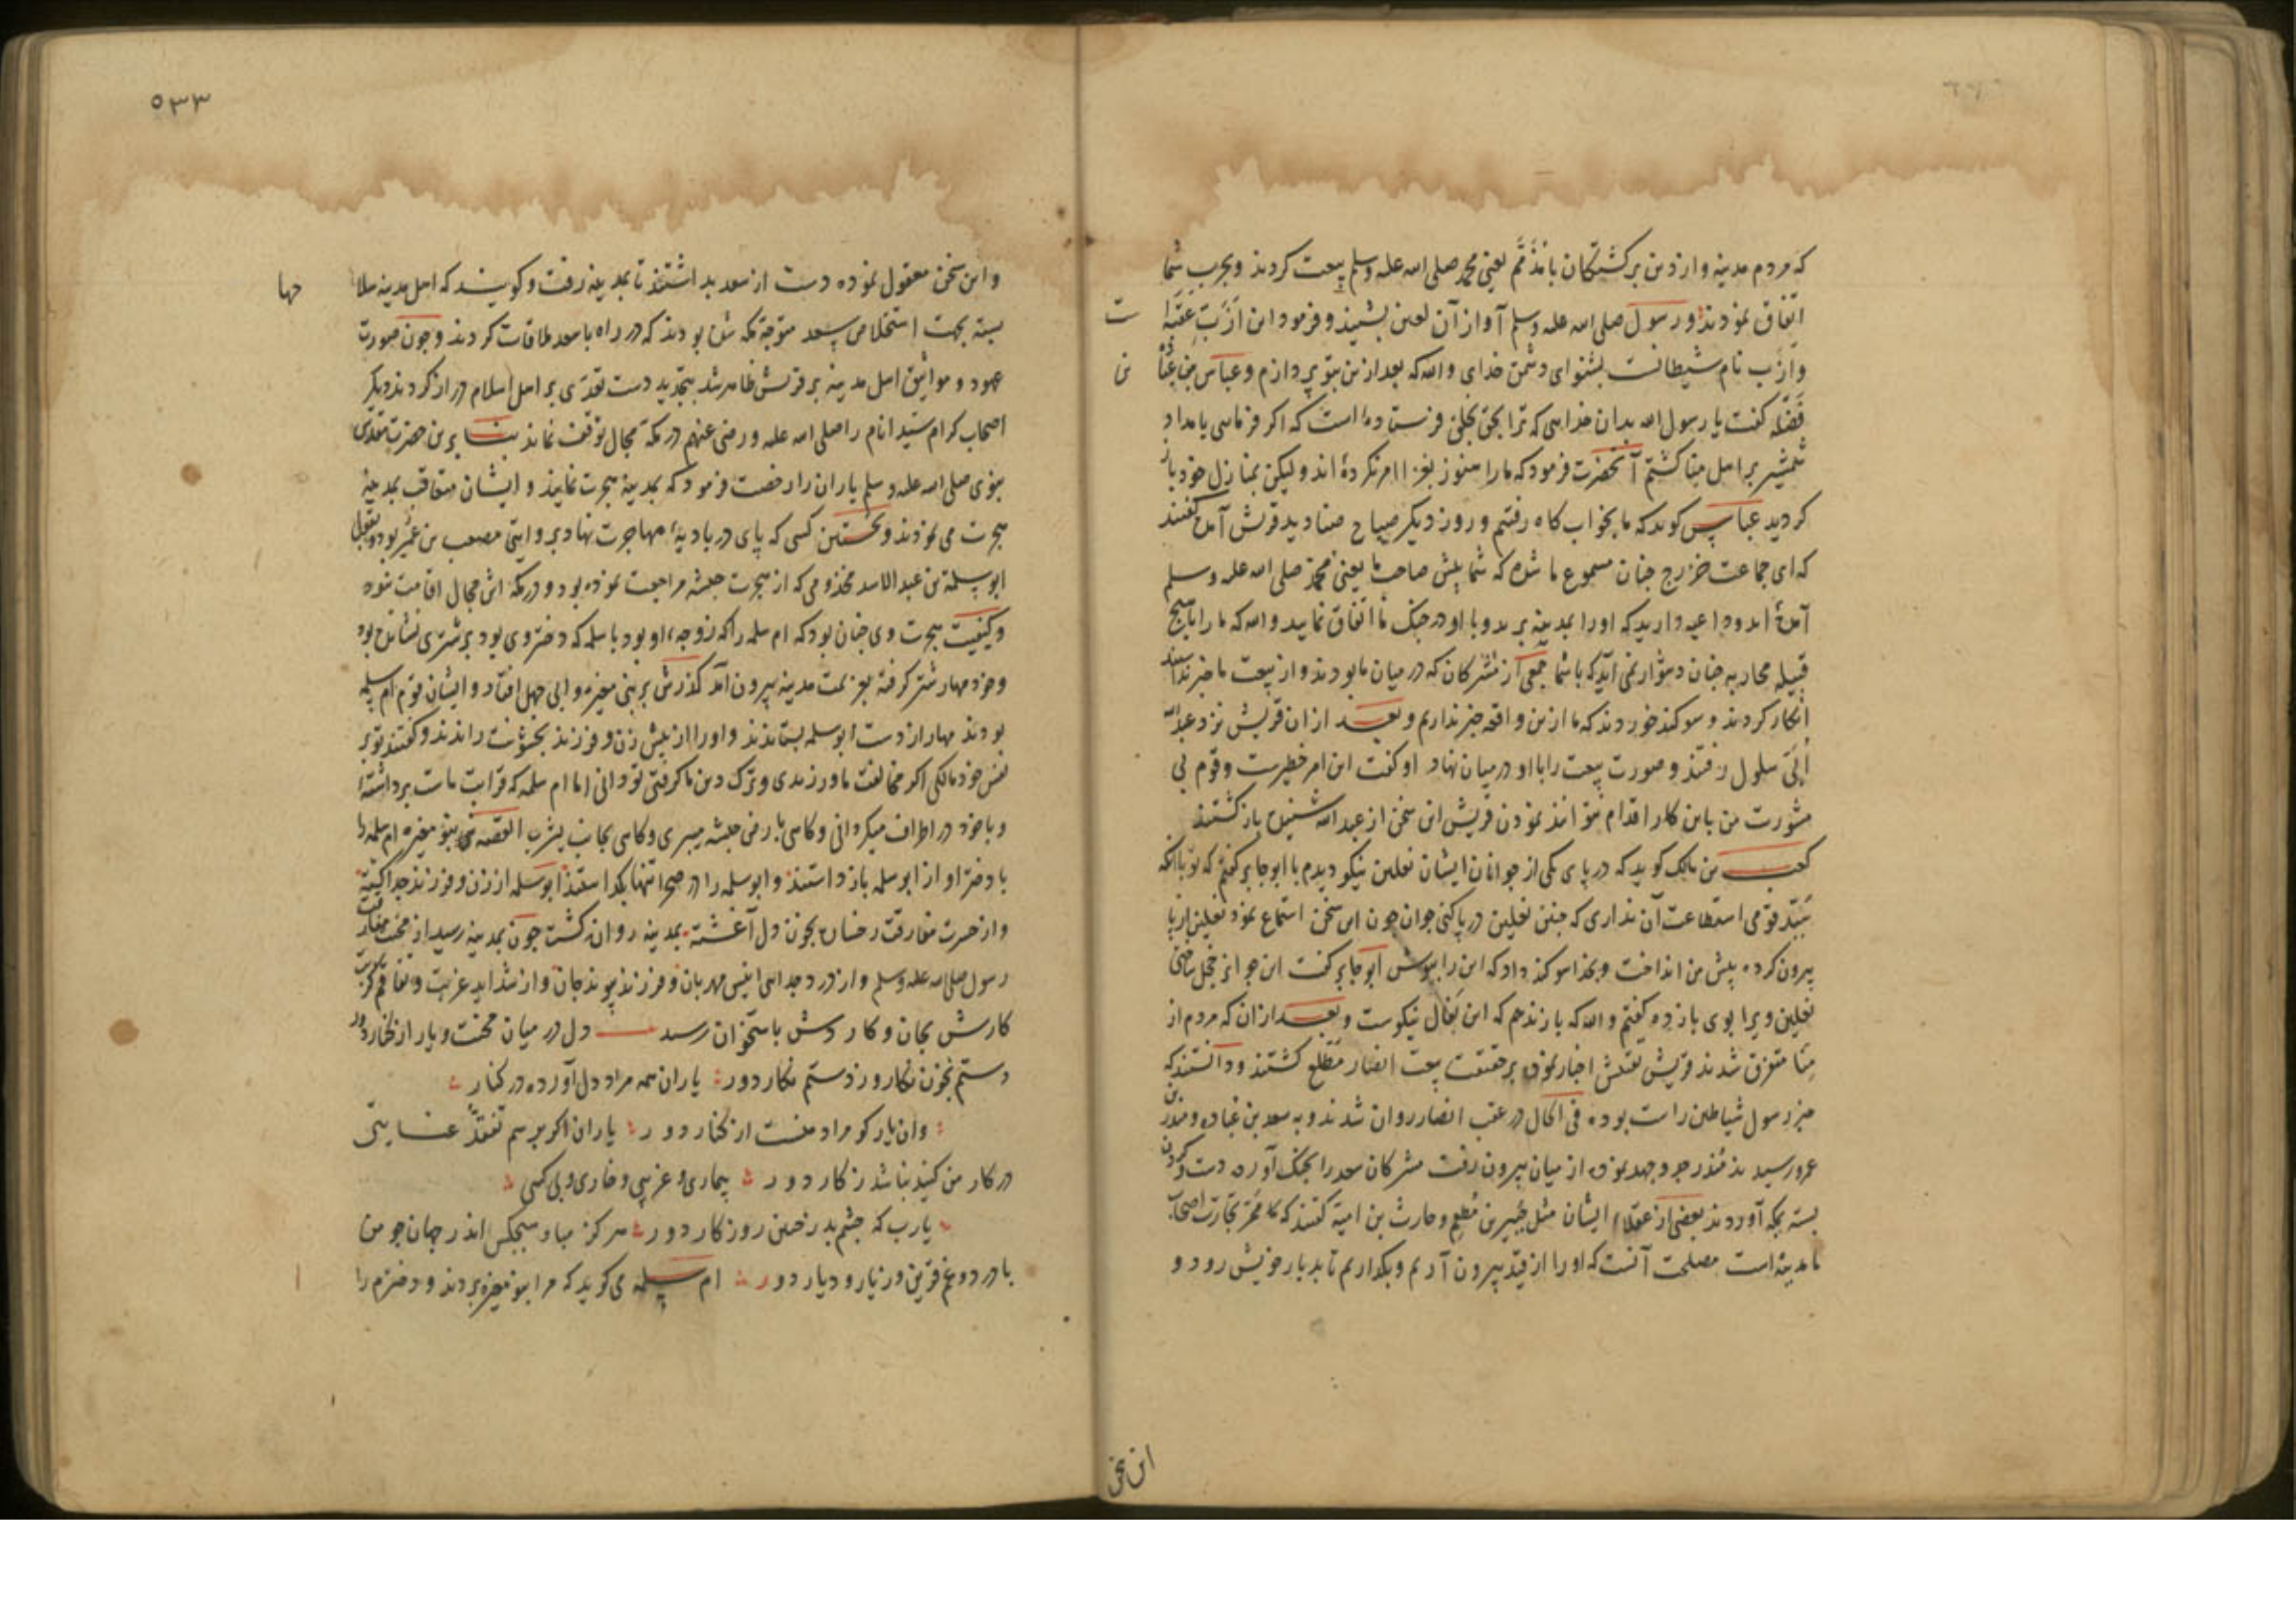 که مردم مدینه و از دین برکشتکان با مذمم یعنی محمد صلی الله علیه وسلم بیعت کردند و بحرب شما
اتفاق نمودند و رسول صلی الله علیه وسلم آواز آن لعین بشنید و فرمود این ازب عقبه
ت
وازب نام شیطانست بشنو ای دشمن خدای والله که بعد ازین بتو پردازم و عباس بن عبا
ن
فضله کفت یا رسول الله بدان خدایی که ترا بحق بخلق فرستاده است که اکر فرمایی بامداد
شمشیر بر اهل منا کشیم آنحضرت فرمود که ما را هنوز بغزا امر نکرده اند ولیکن بمنازل خود باز
کردید عباس کوید که ما بخواب کاه رفتیم و روز دیکر صباح صنادید قریش آمده کفتند
که ای جماعت خزرج چنان مسموع ما شده که شما پیش صاحب ما یعنی محمد صلی الله علیه وسلم
آمده اید و داعیه دارید که او را بمدینه برید و با او در جنک ما اتفاق نمایید والله که ما را با هیچ
قبیله محاربه چنان دشوار نمی آید که با شما جمعی از مشرکان که در میان ما بودند و از بیعت ما خبر نداشتند
انکار کردند و سوکند خوردند که ما ازین واقعه خبر نداریم و بعد از ان قریش نزد عبدالله
ابی سلول رفتند و صورت بیعت را با او در میان نهاد او کفت این امر خطیرست و قوم بی
مشورت من باین کار اقدام نتوانند نمودن قریش این سخن از عبدالله شنیده بازکشتند
کعب بن مالک کوید که در پای یکی از جوانان ایشان نعلین نیکو دیدم با ابو جابر کفتم که تو با آنکه
سید قومی استطاعت آن نداری که چنین نعلین در پا کنی جوان چون این سخن استماع نمود نعلین از پا
بیرون کرده پیش من انداخت و بخدا سوکند داد که این را بپوش ابو جابر کفت این جوانرا خجل ساختی
نعلین ویرا بوی باز ده کفتم والله که باز ندهم که این فال نیکوست و بعد از ان که مردم از
منا متفرق شدند قریش تفتیش اخبار نموده بر حقیقت بیعت انصار مطلع کشتند و دانستند که
خبر رسول شیاطین راست بوده فی الحال در عقب انصار روان شدند و به سعد بن عباده و منذر بن
عمرو رسیدند منذر جد و جهد نموده از میان بیرون رفت مشرکان سعد را بچنک آورده دست و کردن
بسته بمکه آوردند بعضی از عقلاء ایشان مثل جبیر بن مطعم و حارث بن امیه کفتند که ممر تجارت اصحاب
ما مدینه است مصلحت آنست که او را از قید بیرون آریم و بکذاریم تا بدیار خویش رود و
این سخن
۵۳۳
و این سخن معقول نموده دست از سعد بداشتند تا بمدینه رفت و کویند که اهل مدینه سلا
حها
بسته بجهت استخلاص سعد متوجه مکه شده بودند که در راه با سعد ملاقات کردند و چون صورت
عهود و مواثیق اهل مدینه بر قریش ظاهر شد بتجدید دست تعدی بر اهل اسلام دراز کردند دیکر
اصحاب کرام سید انام را صلی الله علیه و رضی عنهم در مکه مجال توقف نماند بنا برین حضرت مقدس
نبوی صلی الله علیه وسلم یاران را رخصت فرمود که بمدینه هجرت نمایند و ایشان متعاقب بمدینه
هجرت می نمودند و نخستین کسی که پای در بادیه مهاجرت نهاد بروایتی مصعب بن عمیر بود و بقولی
ابو سلمة بن عبد الاسد مخذومی که از هجرت حبشه مراجعت نموده بود و در مکه اش مجال اقامت نبود
و کیفیت هجرت وی چنان بود که ام سلمه را که زوجه او بود با سلمه که دختر وی بود بر شتری نشانده بود
و خود مهار شتر کرفته بعزیمت مدینه بیرون آمد کذرش بر بنی مغیره و ابی جهل افتاد و ایشان قوم ام سلمه
بودند مهار از دست ابو سلمه بستاندند و او را از پیش زن و فرزند بخشونت راندند و کفتند تو بر
نفس خود مالکی اکر مخالفت ما ورزیدی و ترک دین ما کرفتی تو دانی اما ام سلمه که قرابت ماست برداشته
و با خود در اطراف میکردانی و کاهی بارض حبشه میبری و کاهی بجانب یثرب القصه بنو مغیره ام سلمه را
با دختر او از ابو سلمه باز داشتند و ابو سلمه را در صحرا تنها بکذاشتند ابو سلمه از زن و فرزند جدا کشته
و از حسرت مفارقت رخساره بخون دل آغشته بمدینه روان کشت چون بمدینه رسید از محنت مفارقت
رسول صلی الله علیه وسلم و از درد جدایی انیس مهربان و فرزند پیوند جان و از شداید غربت و تفاقم کربت
کارش بجان و کاردش باستخوان رسید دل در میان محنت و یار از کنار دور
دستم بخون نکار و ز دستم نکار دور یاران همه مراد دل آورده در کنار
وان یار کو مراد منست از کنار دور یاران اکر برسم تفقد عنایتی
در کار من کنید نباشد ز کار دور بیماری و غریبی و خاری و بی کسی
یارب که چشم بد ز چنین روزکار دور هرکز مباد هیچکس اندر جهان چو من
با درد و غم قرین و ز یار و دیار دور ام سلمه می کوید که مرا بنو مغیره بردند و دخترم را